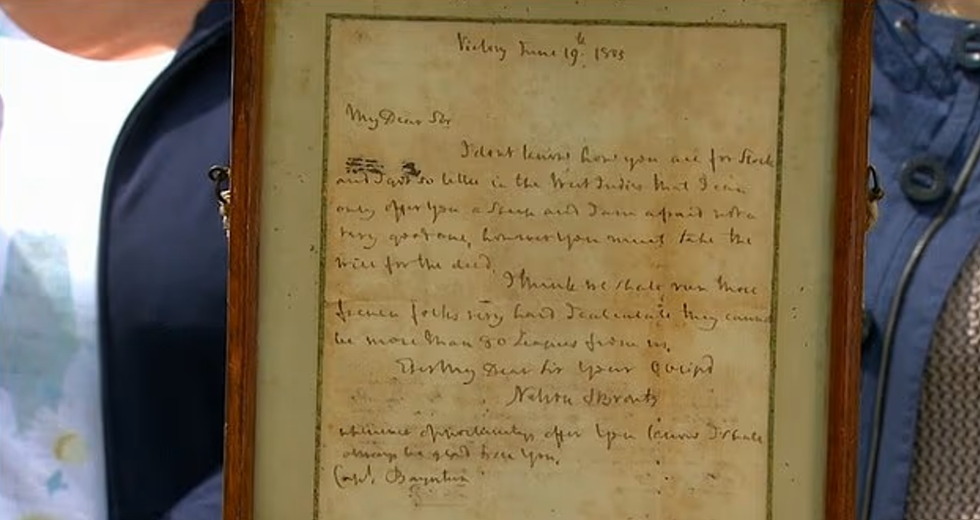 Victory June 19th. 1805
My Dear Sir
I dont know how you are for Stock
and I got so little in the West Indies that I can
only offer you a and I am afraid not a
very good one, however you must take the
will for the deed.
I think we shall run those
french folks very hard I calculate they cannot
be more than 80 Leagues from us,
Ever My Dear Sir Your Obliged
Nelson & Bronte
whenever opportunitys offer you know I shall
always be glad to see you,
Capt. Baynton